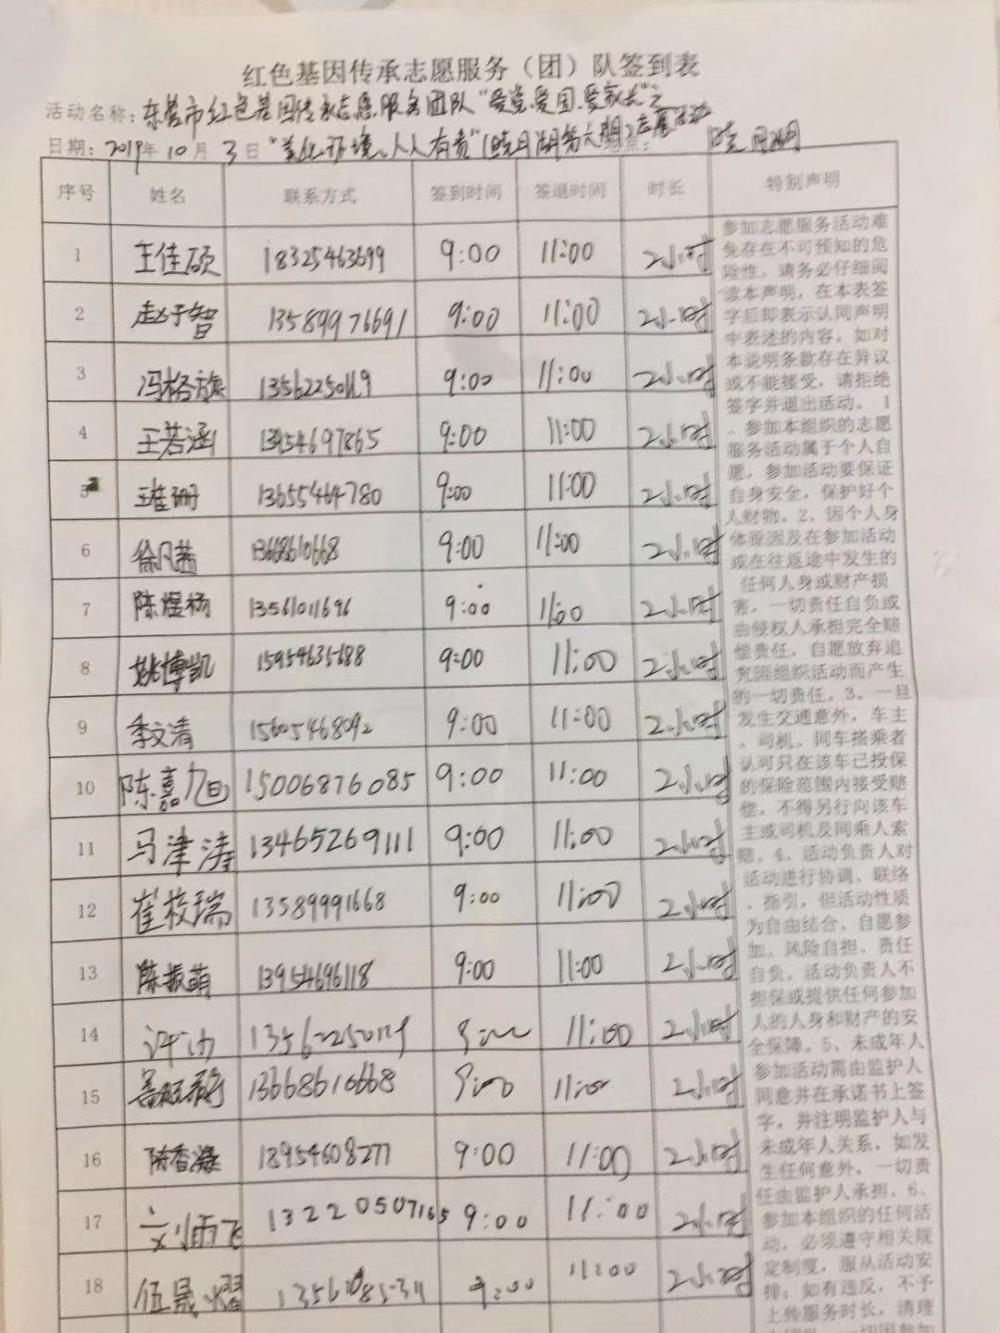 红色基因传承志愿服务（团）队签到表
活动名称：东营市红色基因传承志愿服务团队“爱党、爱国、爱家长”之
日期：2019年10月3日“美化环境、人人有责”（明月湖第六期）志愿活动
明月湖
序号 姓名 联系方式 签到时间 签退时间 时长 特别声明
1 王佳硕 18325463699 9:00 11:00 2小时
2 赵子智 13589976691 9:00 11:00 2小时
3 冯格旗 13562250119 9:00 11:00 2小时
4 王若涵 13954697865 9:00 11:00 2小时
5 王佳珊 13655464780 9:00 11:00 2小时
6 徐凡茜 13668610668 9:00 11:00 2小时
7 陈煜杨 13561011696 9:00 11:00 2小时
8 姚博凯 15954635188 9:00 11:00 2小时
9 李文清 15605468092 9:00 11:00 2小时
10 陈嘉旭 15006876085 9:00 11:00 2小时
11 马津涛 13465269111 9:00 11:00 2小时
12 崔梭瑞 13589991668 9:00 11:00 2小时
13 陈振萌 13954696118 9:00 11:00 2小时
14 13562250119 9:00 11:00 2小时
15 13668610668 9:00 11:00 2小时
16 陈香凝 18954608277 9:00 11:00 2小时
17 刘雨飞 13220507165 9:00 11:00 2小时
18 伍晟熠 9:00 11:00 2小时
参加志愿服务活动难
免存在不可预知的危
险性，请务必仔细阅
读本声明，在本表签
字后即表示认同声明
中表述的内容。如对
本说明条款存在异议
或不能接受，请拒绝
签字并退出活动。1
、参加本组织的志愿
服务活动属于个人自
愿，参加活动要保证
自身安全，保护好个
人财物。2、因个人身
体原因及在参加活动
或在往返途中发生的
任何人身或财产损
害，一切责任自负或
由侵权人承担完全赔
偿责任，自愿放弃追
究因组织活动而产生
的一切责任。3、一旦
发生交通意外，车主
、司机、同车搭乘者
认可只在该车已投保
的保险范围内接受赔
偿，不得另行向该车
主或司机及同乘人索
赔。4、活动负责人对
活动进行协调、联络
、指引，但活动性质
为自由结合，自愿参
加，风险自担、责任
自负。活动负责人不
担保或提供任何参加
人的人身和财产的安
全保障。5、未成年人
参加活动需由监护人
同意并在承诺书上签
字，并注明监护人与
未成年人关系，如发
生任何意外，一切责
任由监护人承担。6、
参加本组织的任何活
动，必须遵守相关规
定制度，服从活动安
排；如有违反，不予
上传服务时长，清理